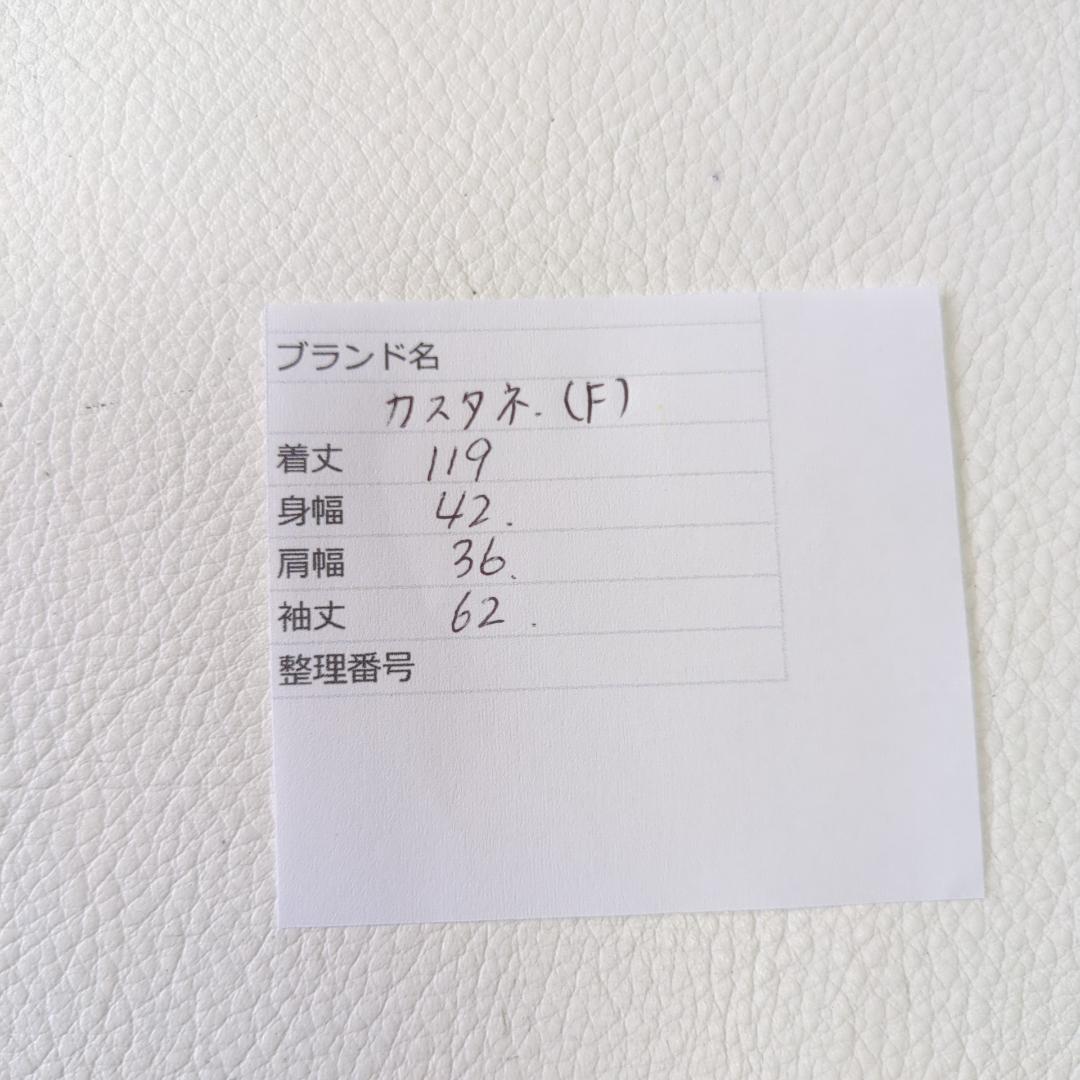 ブランド名
カスタネ.(F)
着丈 119
身幅 42.
肩幅 36.
袖丈 62.
整理番号